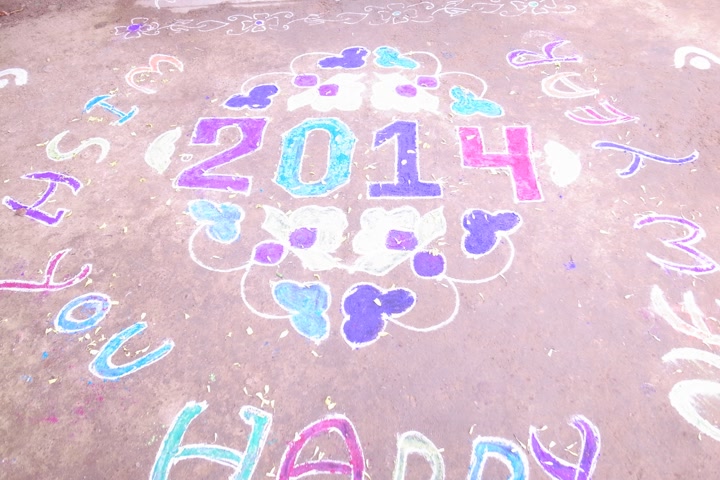 2014
WISH
YOU
HAPPY
NEW
YEAR